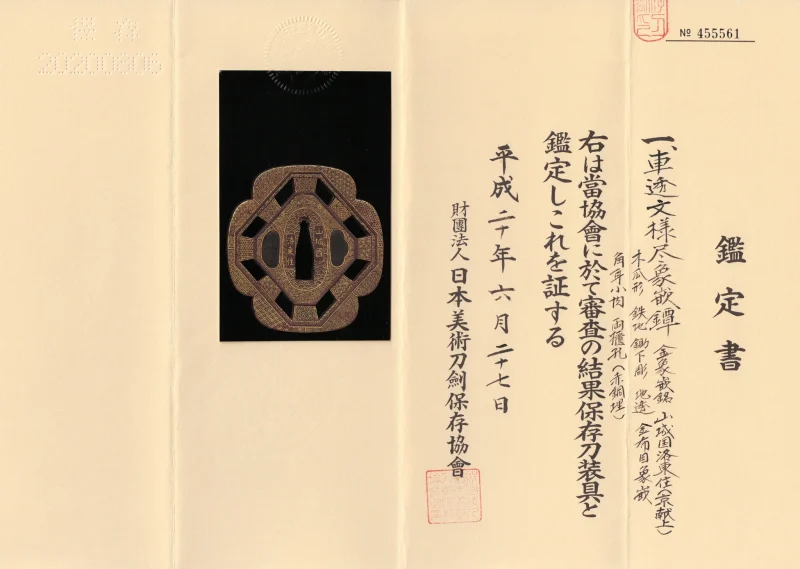 № 455561
鑑定書
一、車透文様尽象嵌鐔 金象嵌銘 山城国洛東住(京献上)
木瓜形 鉄地 鋤下彫 地透 金布目象嵌
角耳小肉 両櫃孔(赤銅埋)
右は當協會に於て審査の結果保存刀装具と
鑑定しこれを証する
平成二十年六月二十七日
財團法人 日本美術刀劍保存協會